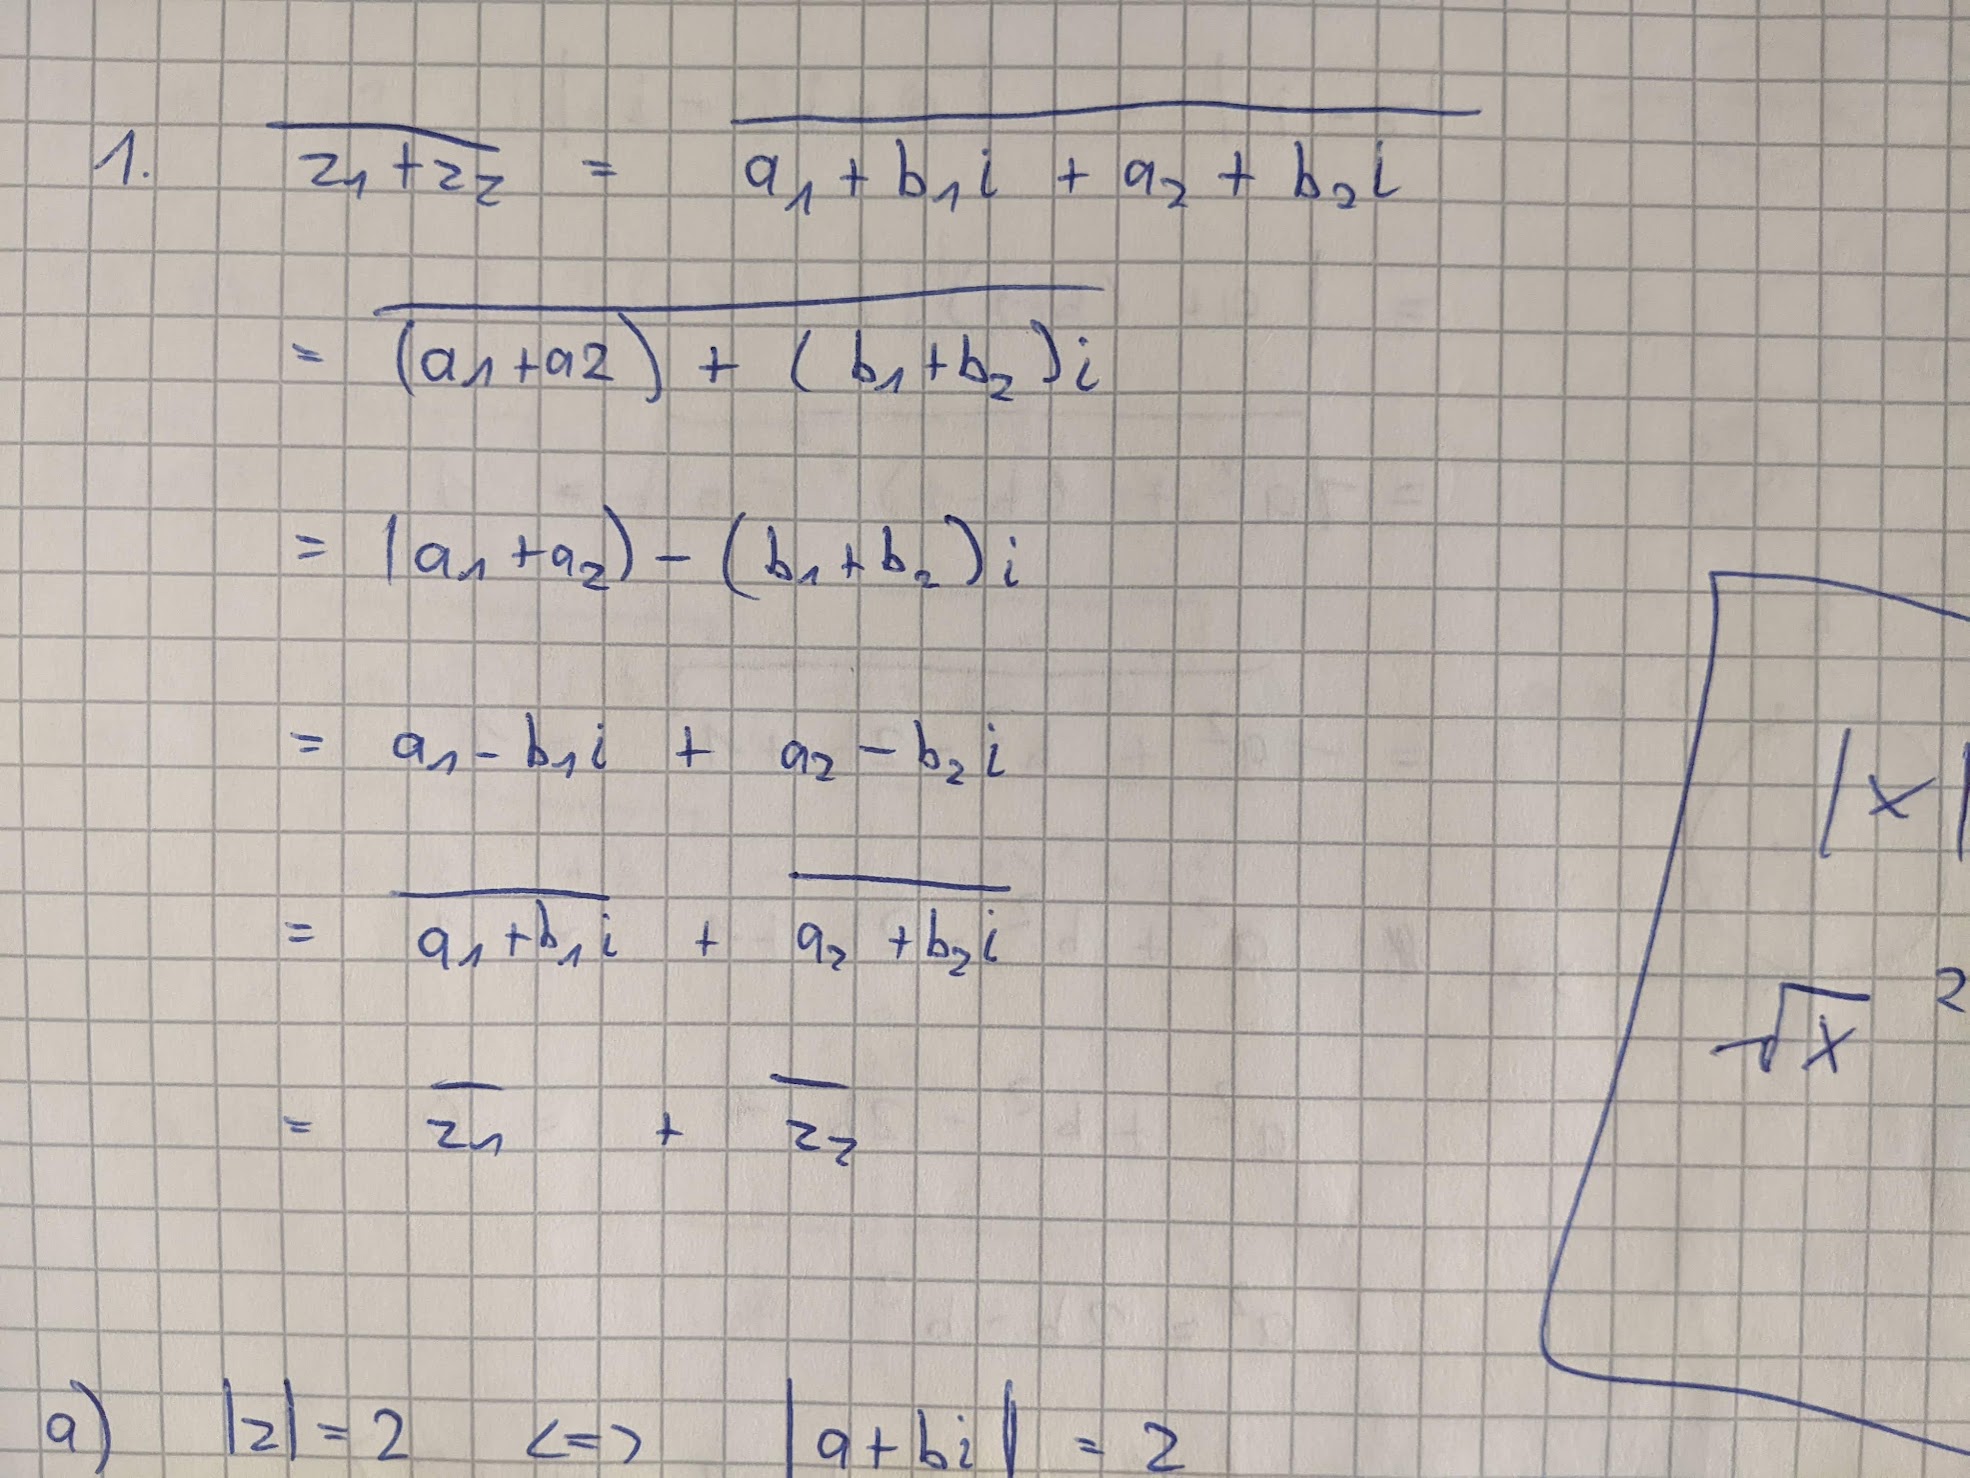 1. $\overline{z_1+z_2} = \overline{a_1+b_1i + a_2+b_2i}$
$= \overline{(a_1+a2) + (b_1+b_2)i}$
$= (a_1+a_2) - (b_1+b_2)i$
$= a_1-b_1i + a_2-b_2i$
$= \overline{a_1+b_1i} + \overline{a_2+b_2i}$
$= \overline{z_1} + \overline{z_2}$
a) |z| = 2 <=> |a+bi| = 2
|x|
$\sqrt{x}^2$